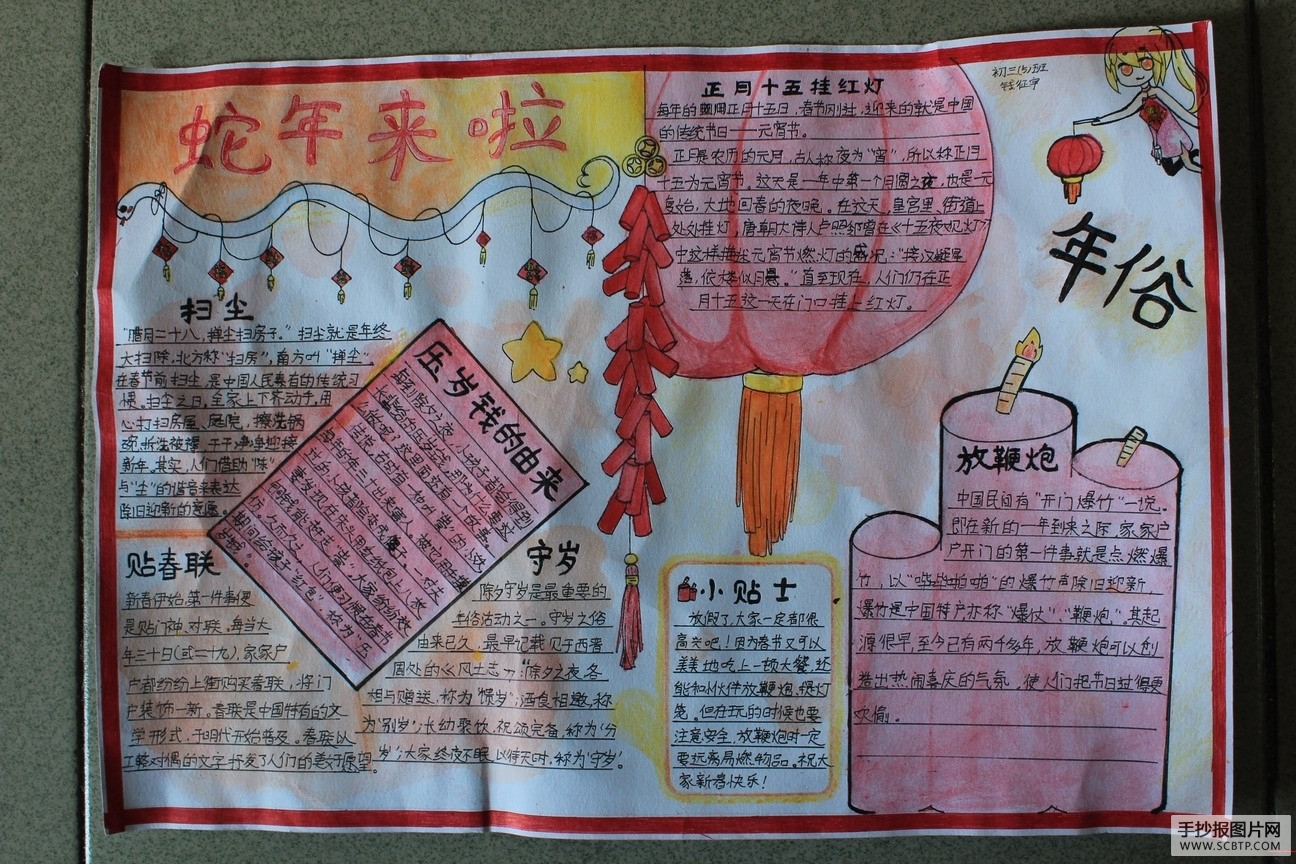 蛇年来啦
初三(5)班
年俗
正月十五挂红灯
每年的农历正月十五日,春节刚过,迎来的就是中国
的传统节日——元宵节。
正月是农历的元月,古人称夜为"宵",所以称正月
十五为元宵节。这天是一年中第一个月圆之夜,也是一元
复始,大地回春的夜晚。在这天,皇宫里、街道上
处处挂灯,唐朝大诗人卢照邻曾在《十五夜观灯》
中这样描述元宵节燃灯的盛况:"接汉疑星
落,依楼似月悬。"直至现在,人们仍在正
月十五这一天在门口挂上红灯。
扫尘
"腊月二十八,掸尘扫房子。"扫尘就是年终
大扫除,北方称"扫房",南方叫"掸尘"
在春节前扫尘,是中国人民素有的传统习
惯。扫尘之日,全家上下齐动手,用
心打扫房屋、庭院,擦洗锅
碗,拆洗被褥,干干净净迎接
新年。其实,人们借助"陈"
与"尘"的谐音来表达
除旧迎新的意愿。
压岁钱的由来
每到除夕之夜,小孩子都会得到
长辈给的压岁钱,那为什么要这
么做呢?这里面还有一个故事。
期间给孩子"红包",称为"压
岁钱"。
贴春联
新春伊始,第一件事便
是贴门神、对联。每当大
年三十日(或二十九),家家户
户都纷纷上街购买春联,将门
户装饰一新。春联是中国特有的文
学形式,于明代开始普及。春联以
工整对偶的文字抒发了人们的美好愿望。
守岁
除夕守岁是最重要的
年俗活动之一。守岁之俗
由来已久,最早记载见于西晋
周处的《风土志》:"除夕之夜,各
相与赠送,称为"馈岁";酒食相邀,称
为"别岁";长幼聚饮,祝颂完备,称为"分
岁";大家终夜不眠,以待天时,称为"守岁"。
小贴士
放假了,大家一定都很
高兴吧!因为春节又可以
美美地吃上一顿大餐,还
能和小伙伴放鞭炮、提灯
笼。但在玩的时候也要
注意安全,放鞭炮时一定
要远离易燃物品。祝大
家新春快乐!
放鞭炮
中国民间有"开门爆竹"一说。
即在新的一年到来之际,家家户
户开门的第一件事就是点燃爆
竹,以"噼噼啪啪"的爆竹声除旧迎新,
爆竹是中国特产,亦称"爆仗"、"鞭炮"。其起
源很早,至今已有两千多年,放鞭炮可以创
造出热闹喜庆的气氛,使人们把节日过得更
欢愉。
手抄报图片网
WWW.SCBTP.COM